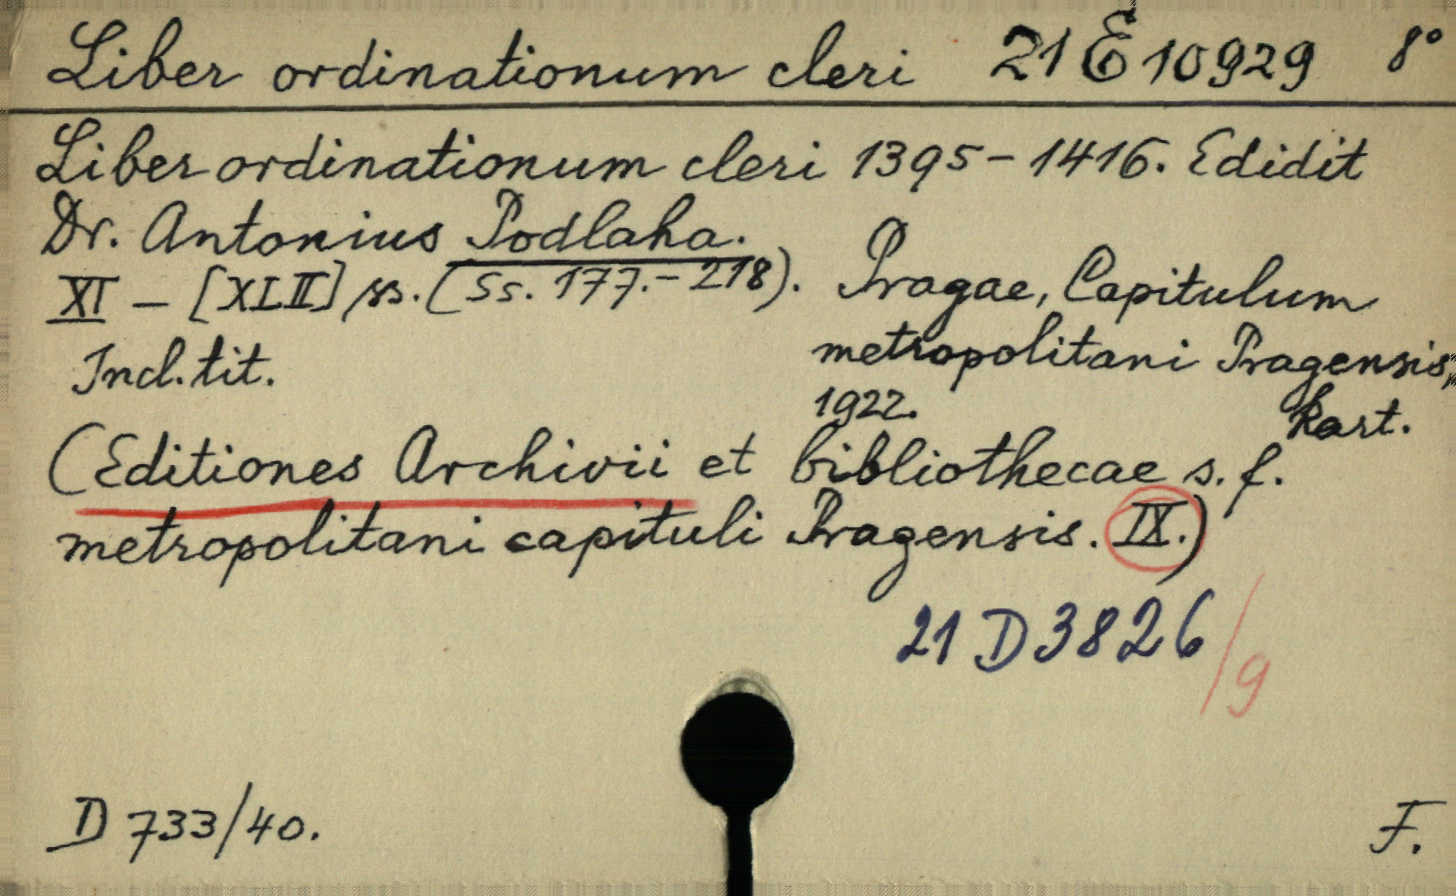 Liber ordinationum cleri 21 E 10929 8°
Liber ordinationum cleri 1395-1416. Edidit
Dr. Antonius Podlaha.
XI - [XLII] ss. (Ss. 177.-218). Pragae, Capitulum
Incl. tit. metropolitani Pragensis,
1922. kart.
(Editiones Archivii et bibliothecae s. f.
metropolitani capituli Pragensis. IX.)
21 D 3826/9
D 733/40. F.